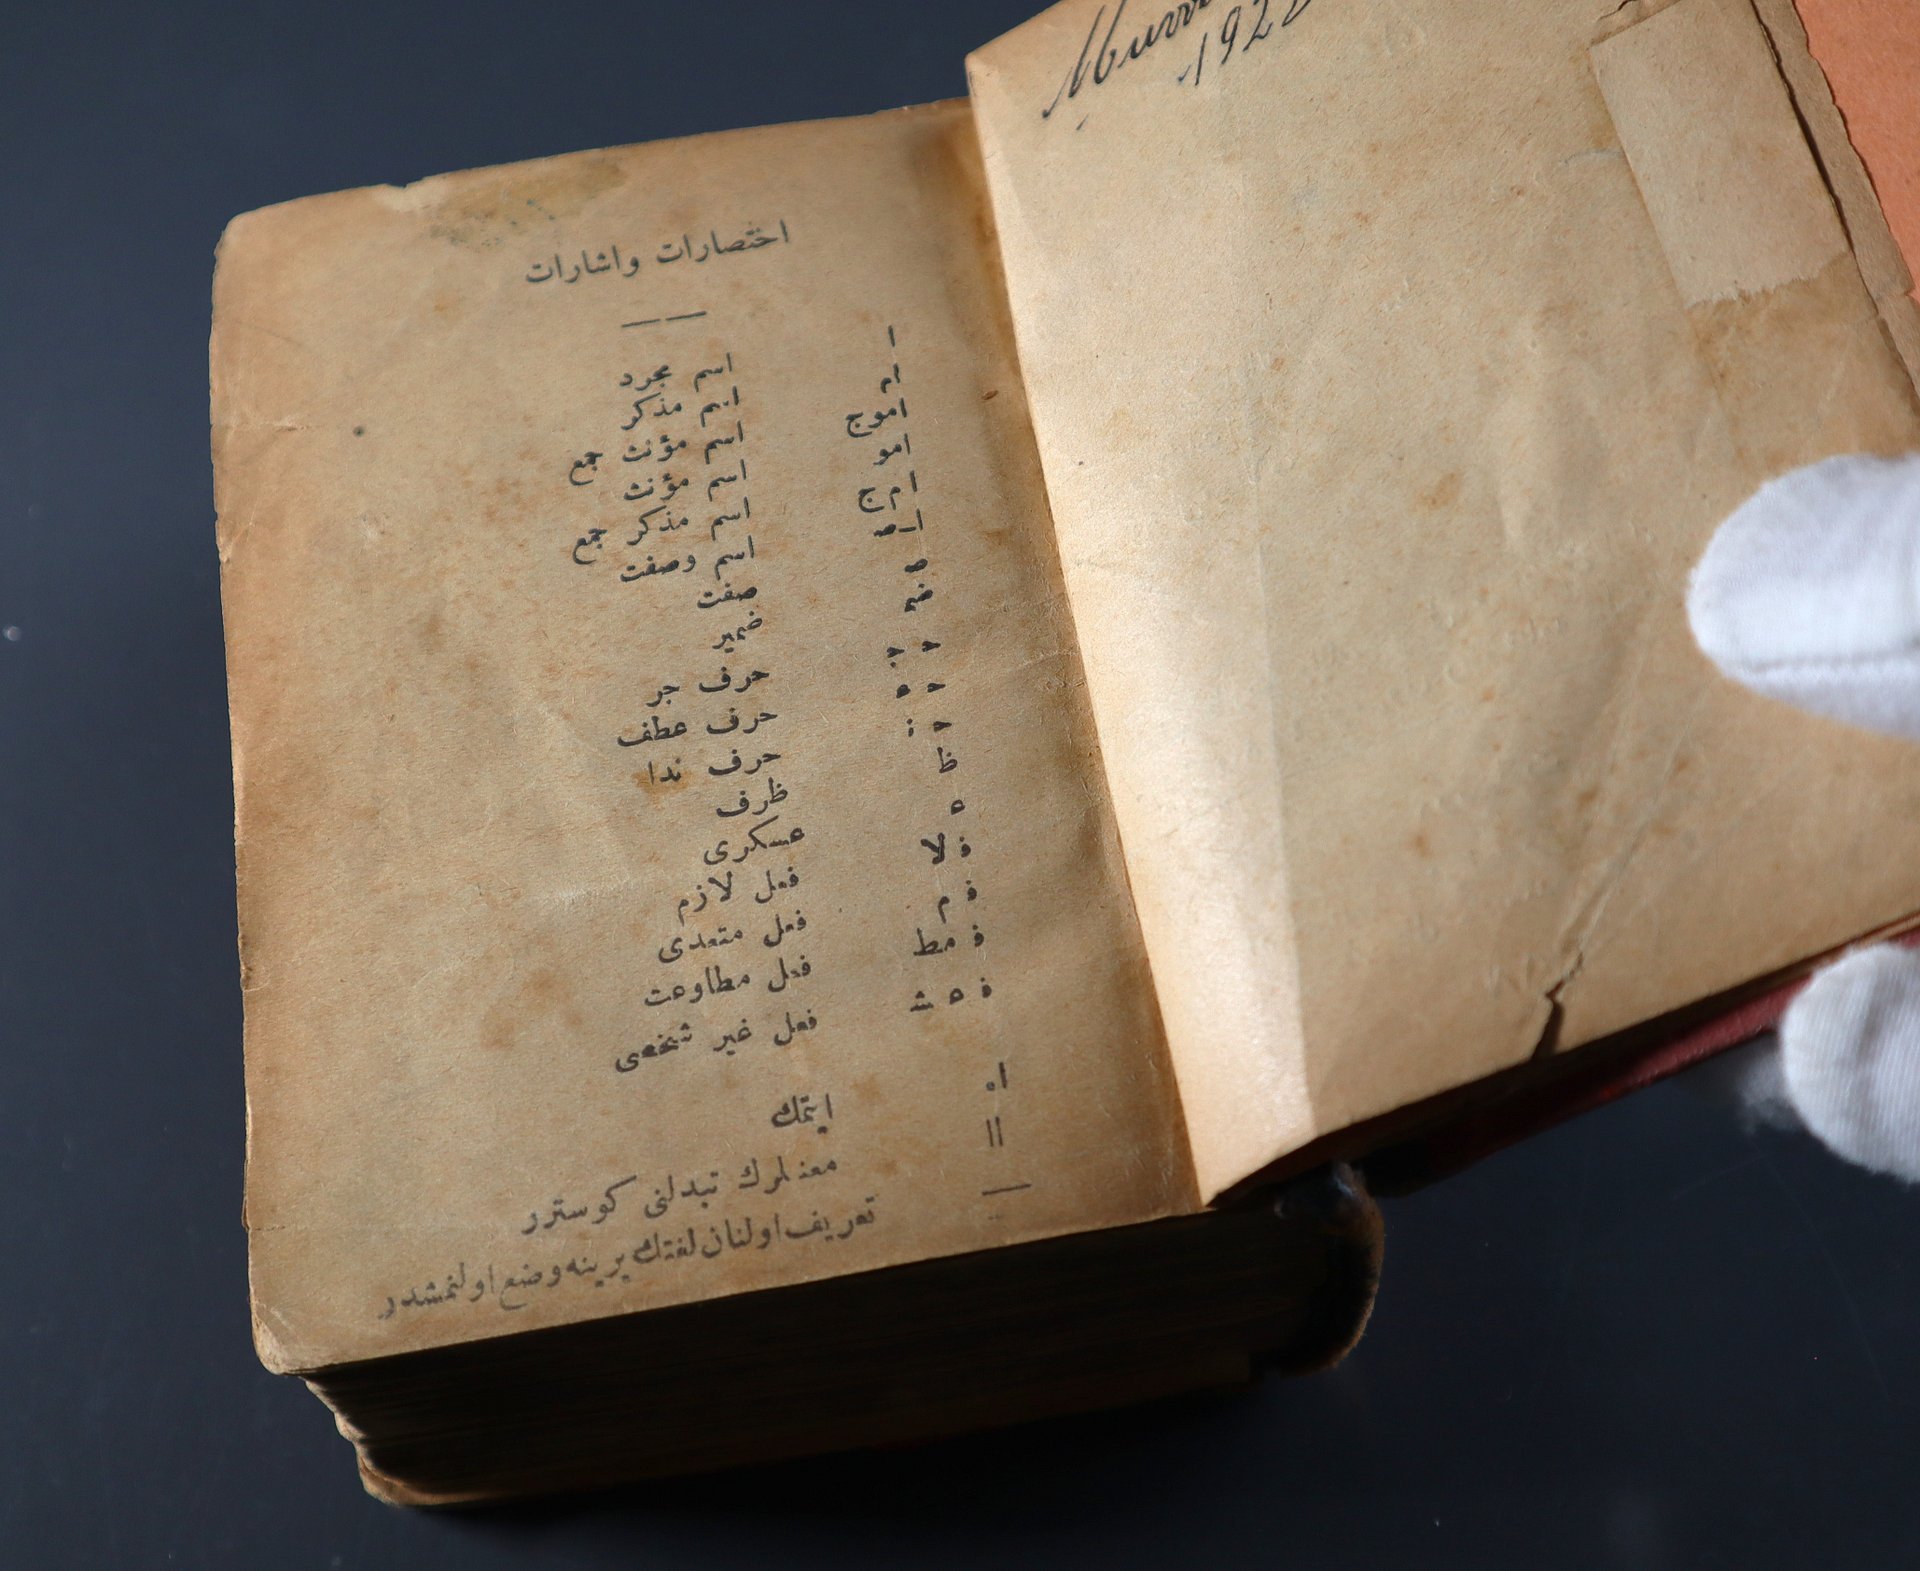 1922
اختصارات واشارات
ا اسم مجرد
ام اسم مذكر
اموج اسم مؤنث جمع
امو اسم مؤنث
ام ج اسم مذكر جمع
ا_صـ اسم وصفت
صـ صفت
ضمـ ضمير
حـ جـ حرف جر
حـ عـ حرف عطف
حـ نـ حرف ندا
ظ ظرف
عـ عسكرى
فـ لا فعل لازم
فـ م فعل متعدى
فـ مط فعل مطاوعت
فـ غـ شـ فعل غير شخصى
اه ايتمك
|| معنالرك تبدلنى كوسترر
— تعريف اولنان لغتك يرينه وضع اولنمشدر